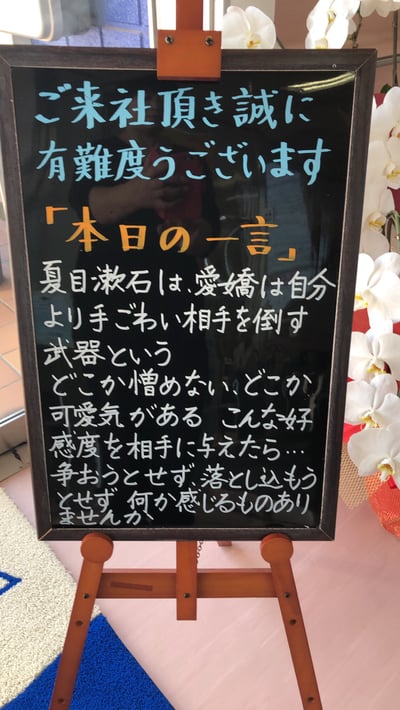 ご来社頂き誠に
有難度うございます
「本日の一言」
夏目漱石は、愛嬌は自分
より手ごわい相手を倒す
武器という
どこか憎めない。どこか
可愛気がある こんな好
感度を相手に与えたら…
争おうとせず、落とし込もう
とせず、何か感じるものあり
ませんか